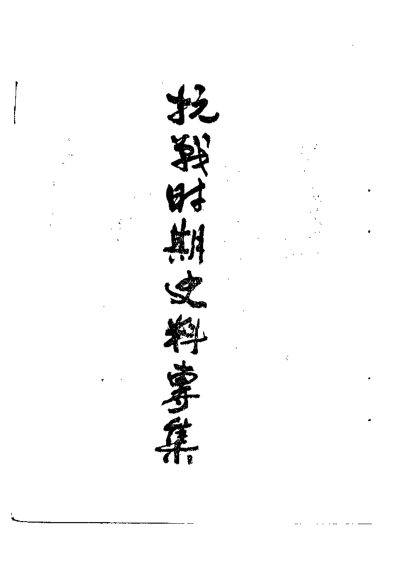 抗戰时期史料專集